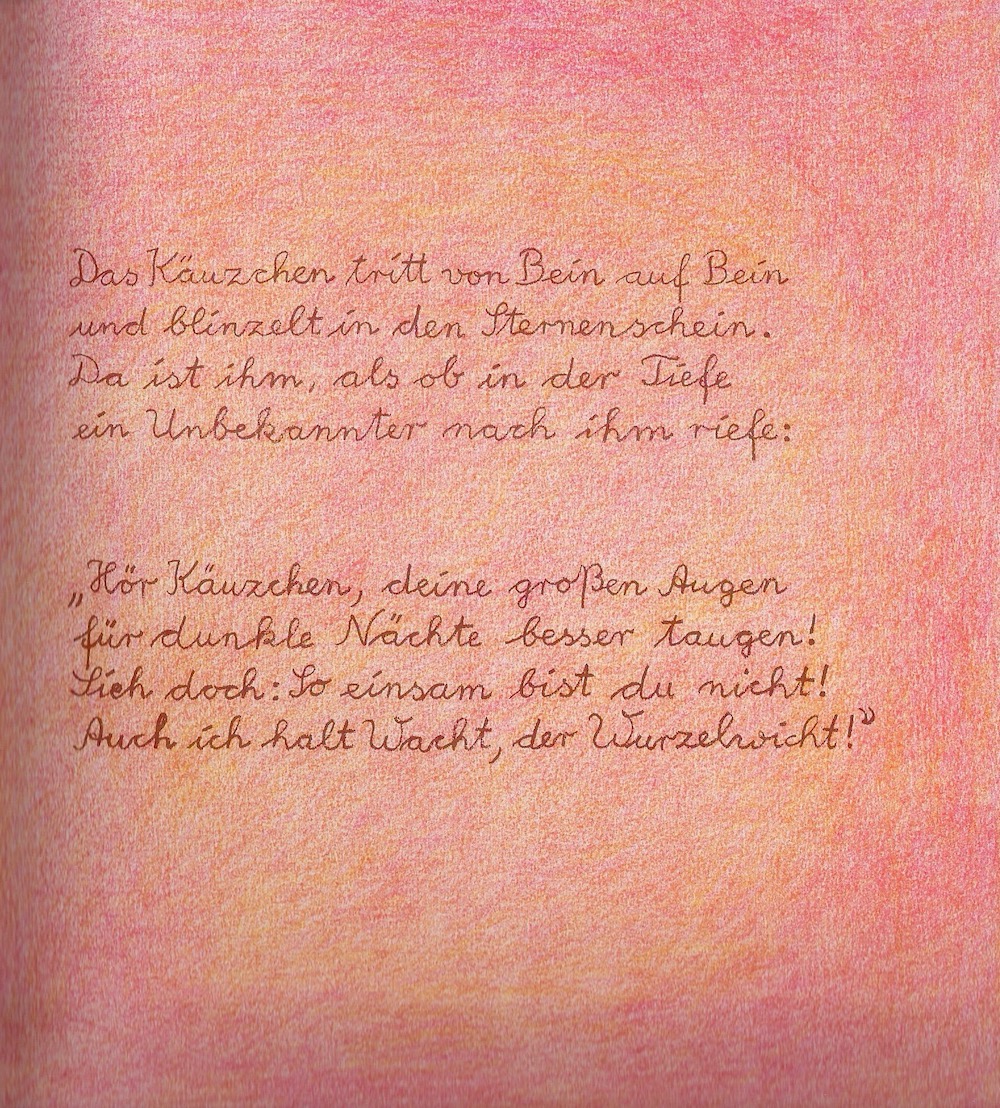 Das Käuzchen tritt von Bein auf Bein
und blinzelt in den Sternenschein.
Da ist ihm, als ob in der Tiefe
ein Unbekannter nach ihm riefe:
„Hör Käuzchen, deine großen Augen
für dunkle Nächte besser taugen!
Sieh doch: So einsam bist du nicht!
Auch ich halt Wacht, der Wurzelwicht!”